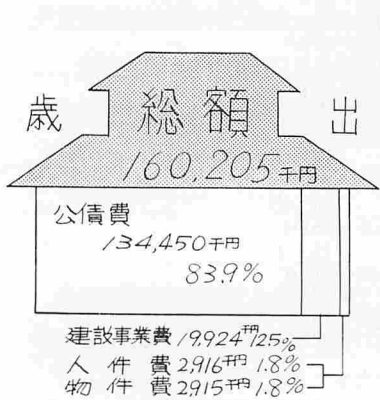 歳 総額 出
160,205千円
公債費
134,450千円
83.9%
建設事業費 19,924千円 12.5%
人件費 2,916千円 1.8%
物件費 2,915千円 1.8%